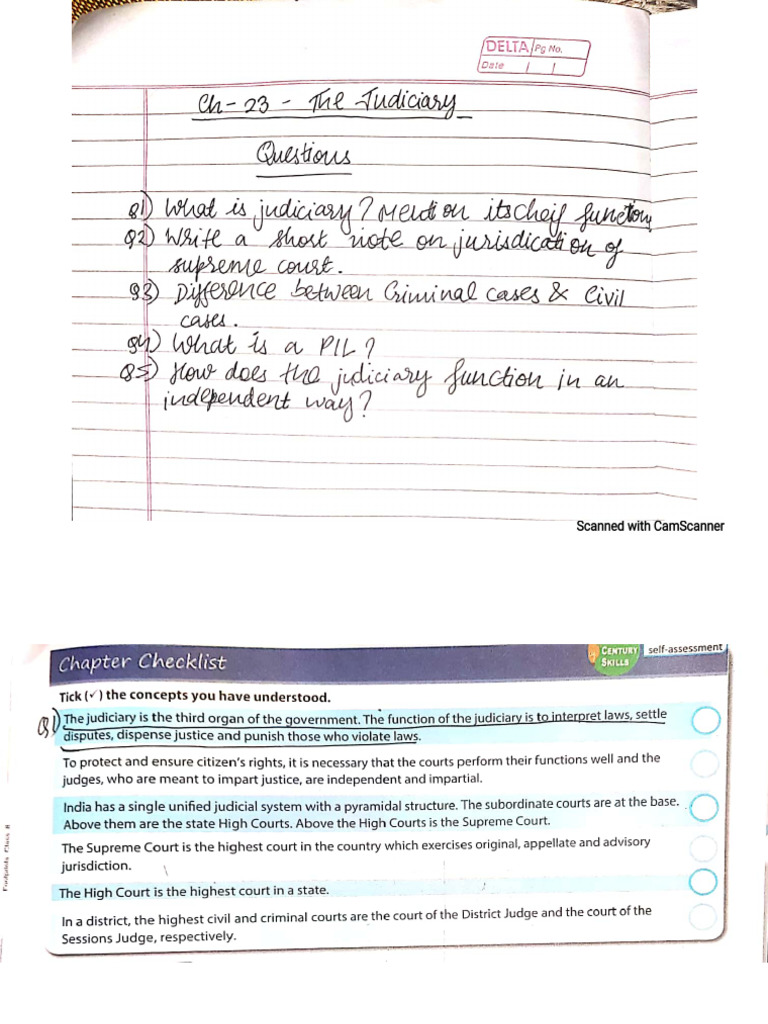 DELTA Pg No.
Date / /
Ch-23 - The Judiciary
Questions
Q1) What is judiciary? Mention its cheif function
Q2) Write a short note on jurisdication of
supreme court.
Q3) Difference between Criminal cases & Civil
cases.
Q4) What is a PIL?
Q5) How does the judiciary function in an
independent way?
Scanned with CamScanner
Chapter Checklist
CENTURY SKILLS self-assessment
Tick (✓) the concepts you have understood.
Q1) The judiciary is the third organ of the government. The function of the judiciary is to interpret laws, settle
disputes, dispense justice and punish those who violate laws.
To protect and ensure citizen's rights, it is necessary that the courts perform their functions well and the
judges, who are meant to impart justice, are independent and impartial.
India has a single unified judicial system with a pyramidal structure. The subordinate courts are at the base.
Above them are the state High Courts. Above the High Courts is the Supreme Court.
The Supreme Court is the highest court in the country which exercises original, appellate and advisory
jurisdiction.
The High Court is the highest court in a state.
In a district, the highest civil and criminal courts are the court of the District Judge and the court of the
Sessions Judge, respectively.